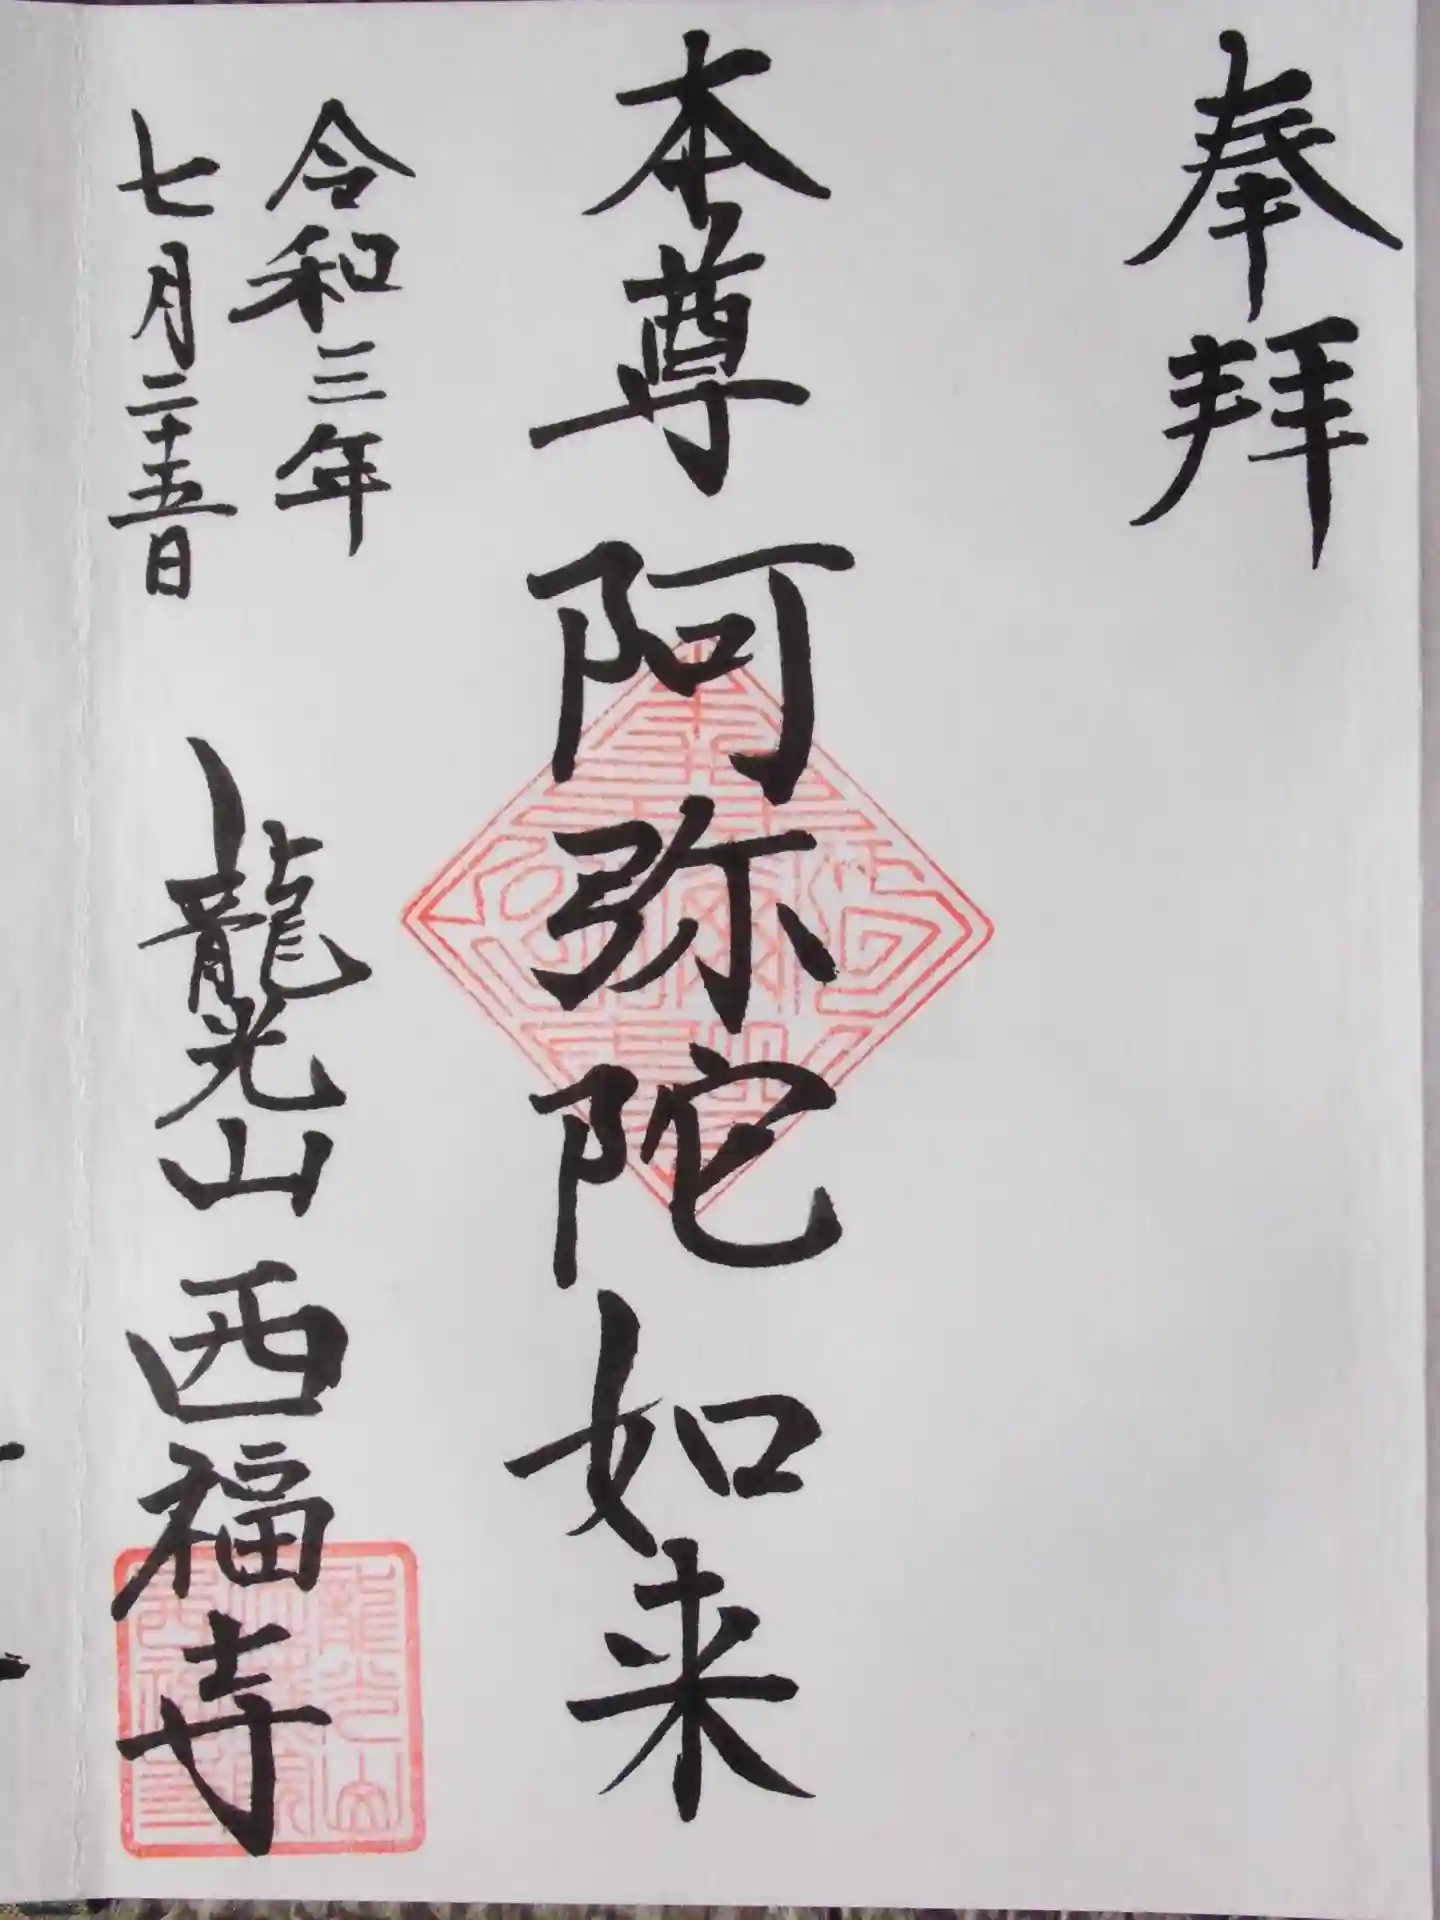 奉拜
本尊 阿弥陀如来
令和三年
七月二十五日
龍光山 西福寺